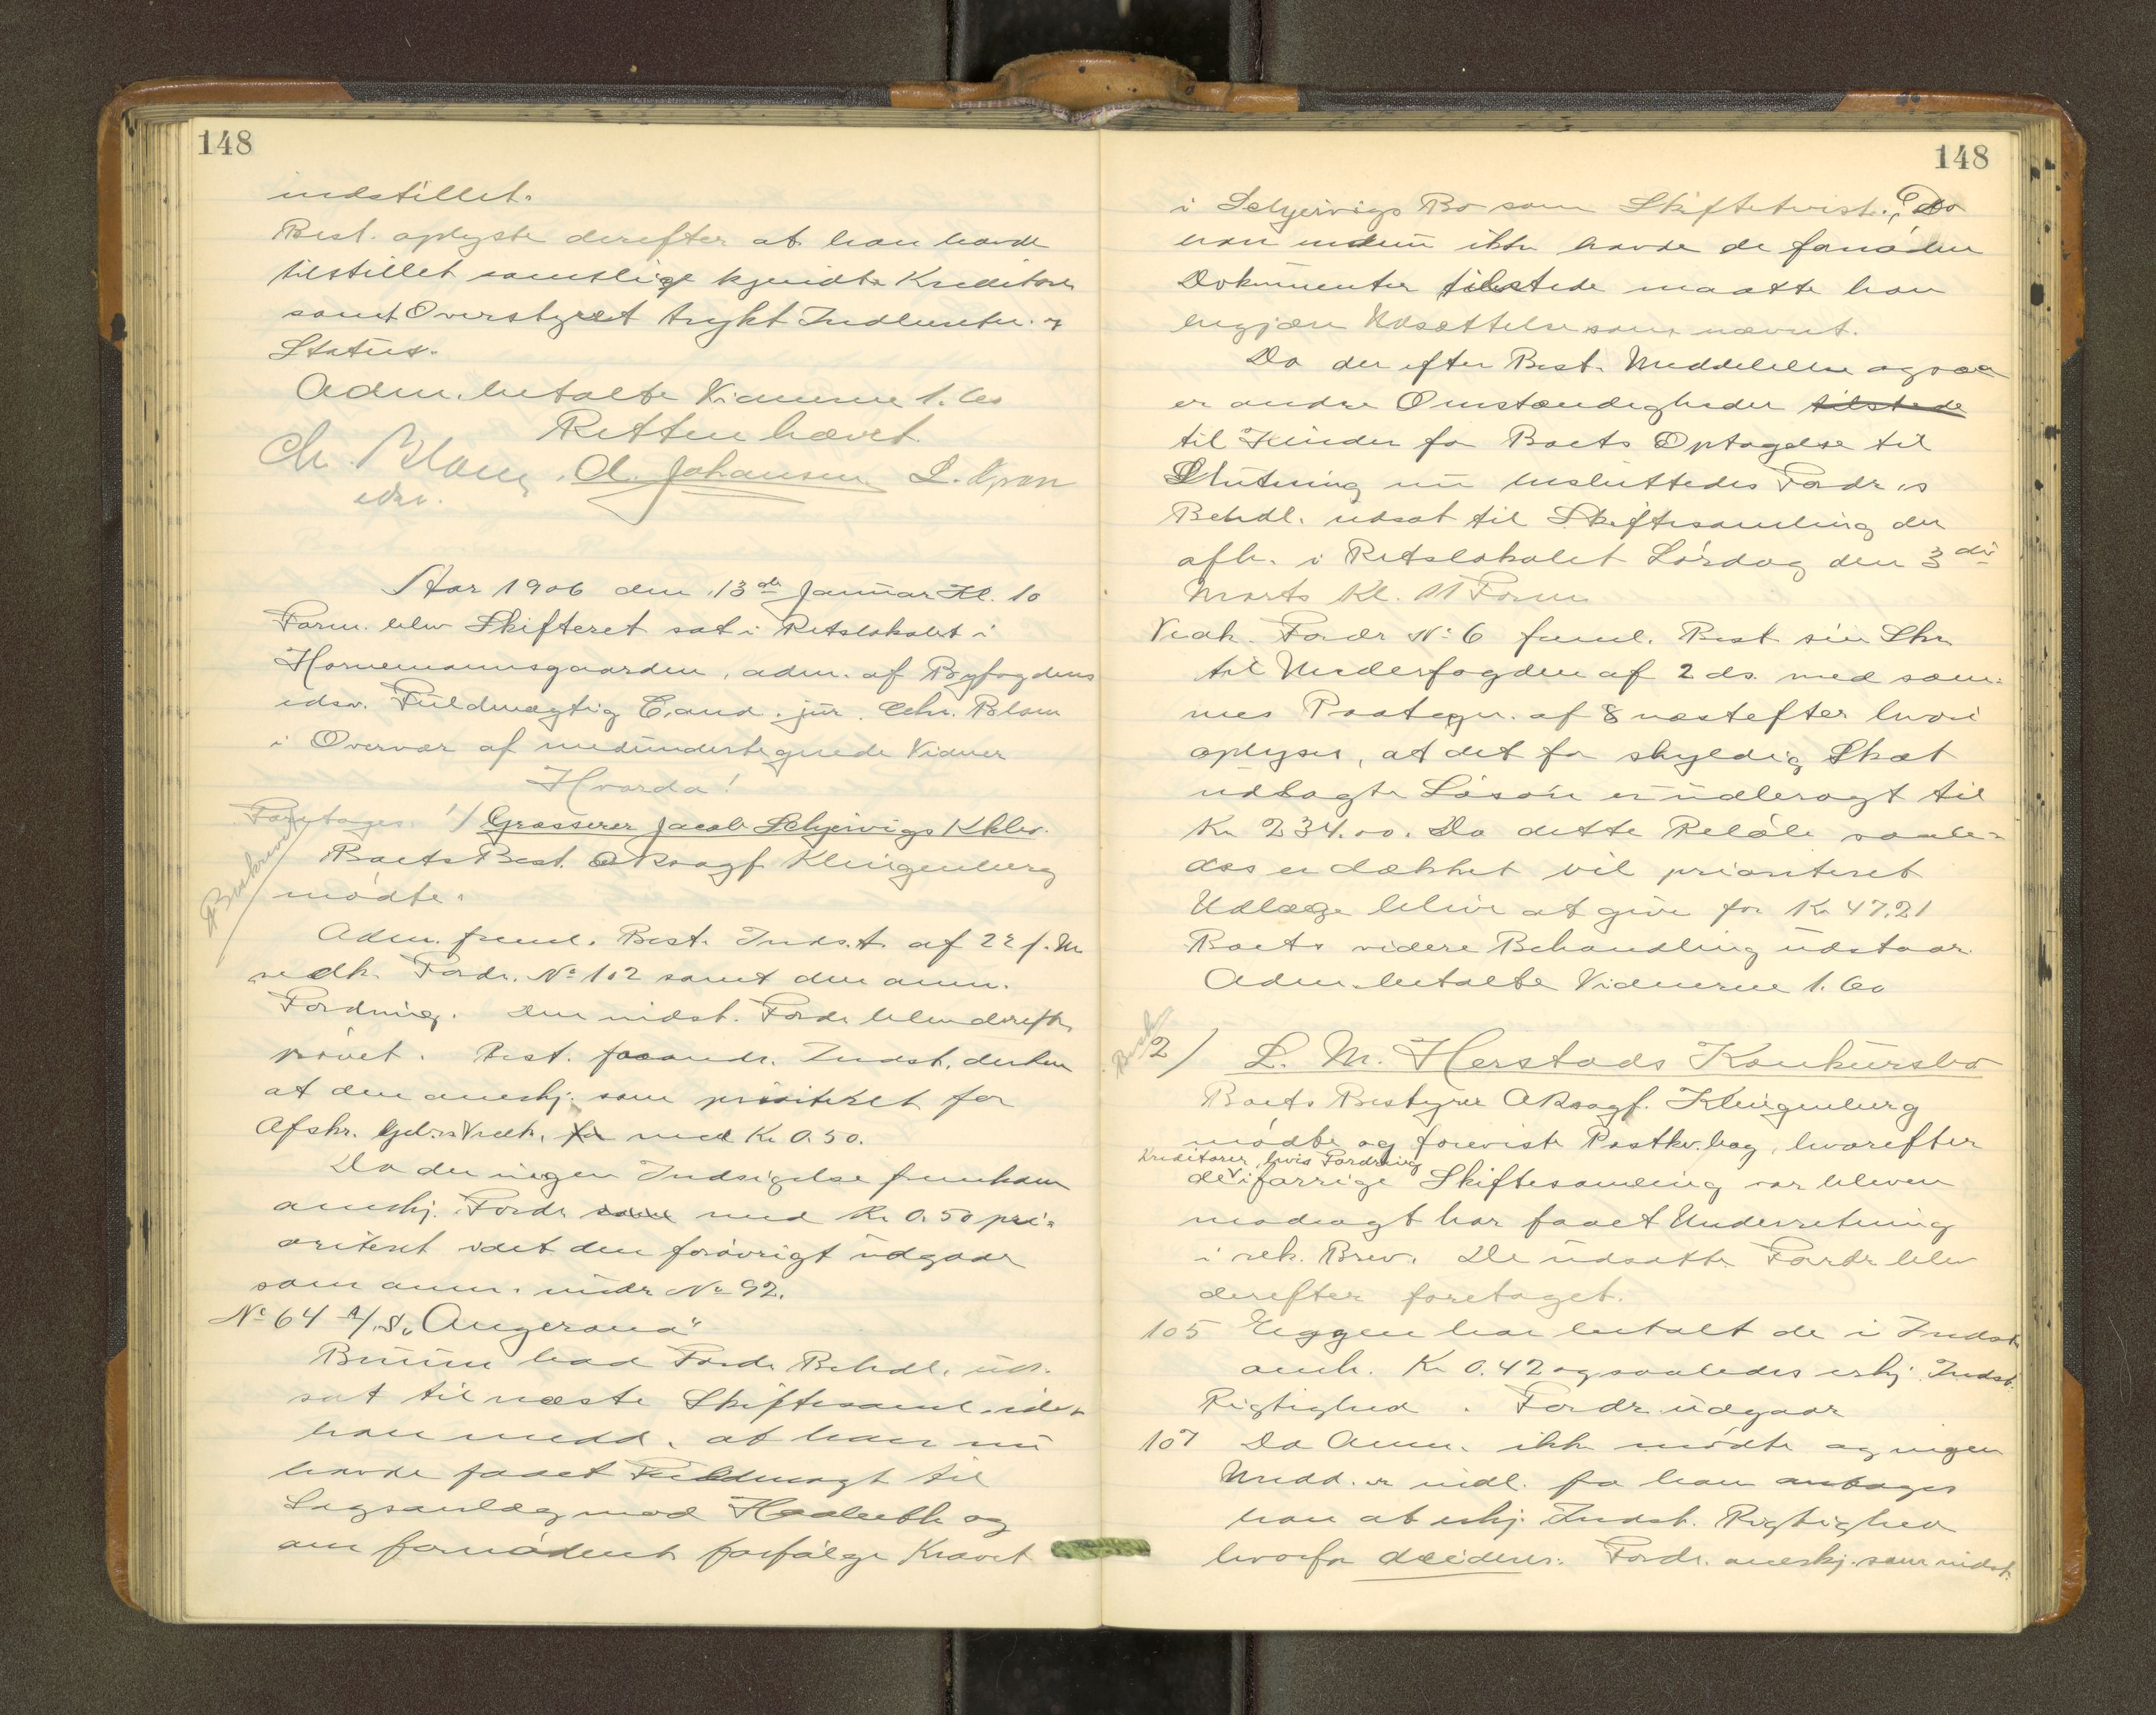 148
indstillet.
Best. oplyste derefter at han havde
tilstillet samtlige kjendte Kreditorer
samt Overstyret trykt Indberetn. og
Status.
Adm. betalte Vidnerne 1.60
Retten hævet
Chr. Blom, A. Johansen L. Gran
edsv.
Aar 1906 den 13de Januar Kl. 10
Form. blev Skifteret sat i Retslokalet i
Hornemannsgaarden, adm. af Byfogdens
edsv. Fuldmægtig Cand. jur. Chr. Blom
i Overvær af medundertegnede Vidner
Hvorda!
Foretages 1/ Grosserer Jacob Schjervigs Kkbo.
Beskrevet
Boets Best. ORsagf. Klingenberg
mødte.
Adm. freml. Best. Indst. af 22 f. M.
vedk. Fordr. No 102 samt den anm.
Fordring. Den indst. Fordr. blev derefter
prøvet. Best. forandr. Indst. derhen
at den anerkj. som prioriteret for
Afskr. Gebr. Vedk. med Kr 0.50.
Da der ingen Indsigelse fremkom
anerkj. Fordr. med Kr 0.50 pri-
oriteret idet den forøvrigt udgaar
som anm. under No 92.
No 64 A/S "Angerona"
Bruun bad Fordr. Behdl. ud-
sat til næste Skiftesaml. idet
han medd. at han nu
havde faaet Fuldmagt til
Lagsanlæg mod og
om fornødent forfølge Kravet
148
i Schjervigs Bo som Skiftetvist. Da
han ikke havde de fornødne
Dokumenter tilstede maatte han
begjære Udsættelse som nævnt.
Da der efter Best. Meddelelse ogsaa
er andre Omstændigheder tilstede
til Hinder for Boets Optagelse til
Slutning nu besluttedes Fordr.s
Behdl. udsat til Skiftesamling der
afh. i Retslokalet Lørdag den 3die
Marts Kl. 11 Form
Vedk. Fordr No 6 freml. Best sin Skr.
til Underfogden af 2 ds. med sam-
mes Paategn. af 8 næstefter hvori
oplyses, at det for skyldig Skat
udlagte Løsøre er udbragt til
Kr 234.00. Da dette Beløb saale-
des er dækket vil prioriteret
Udlæg blive at give for Kr 47.21
Boets videre Behandling udstaar.
Adm. betalte Vidnerne 1.60
Besk
2/ L. M. Herstads Konkursbo
Boets Bestyrer ORsagf. Klingenberg
mødte og foreviste Postkv.bog, hvorefter
Kreditorer, hvis Fordring
de i forrige Skiftesamling var bleven
modsagt har faaet Underretning
i rek. Brev. De udsatte Fordr blev
derefter foretaget.
105 Eggen har betalt de i Indst.
omh. Kr 0.42 og saaledes erkj. Indst.
Rigtighed. Fordr udgaar
107 Da Anm. ikke mødte og ingen
Medd. er indl. fra ham antages
han at erkj. Indst. Rigtighed
hvorfor decideres: Fordr. anerkj. som indst.